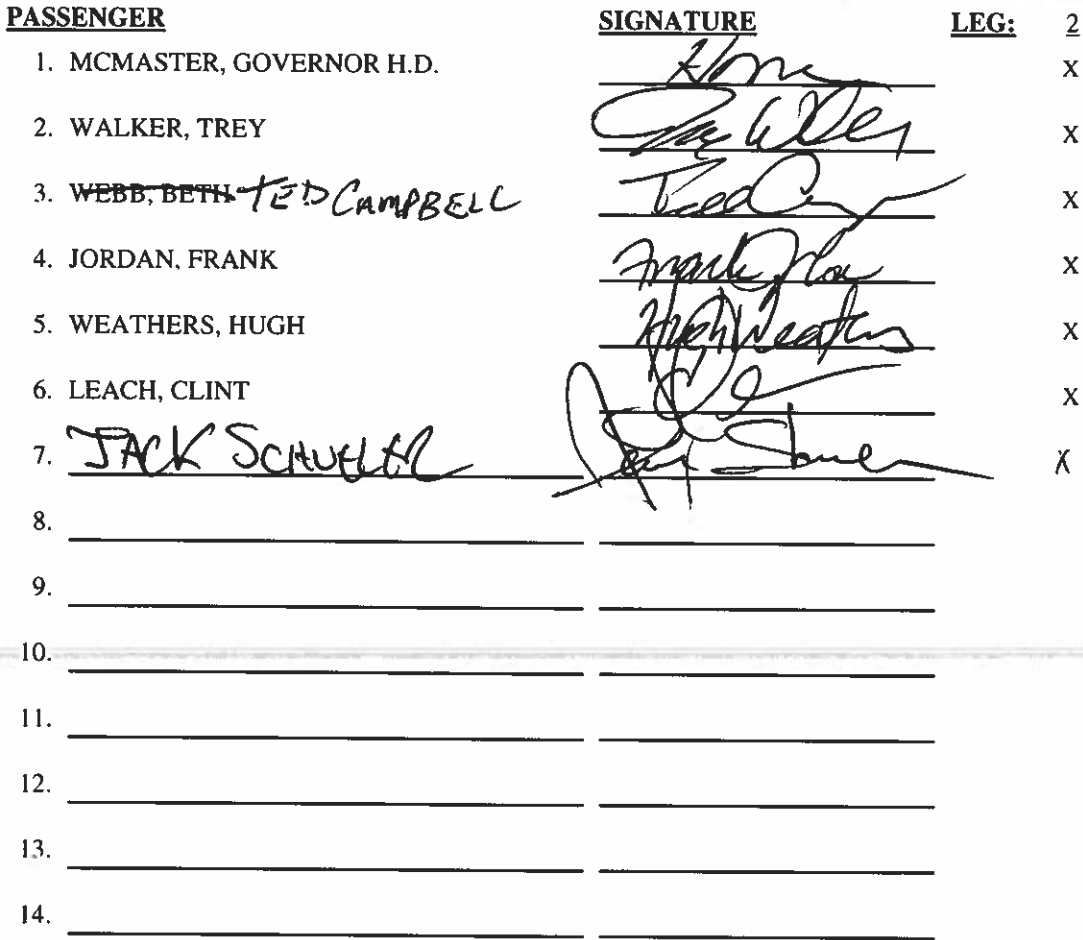 PASSENGER SIGNATURE LEG: 2
1. MCMASTER, GOVERNOR H.D. X
2. WALKER, TREY X
3. WEBB, BETH TED CAMPBELL X
4. JORDAN, FRANK Frank X
5. WEATHERS, HUGH Hugh Weathers X
6. LEACH, CLINT X
7. JACK X
8.
9.
10.
11.
12.
13.
14.